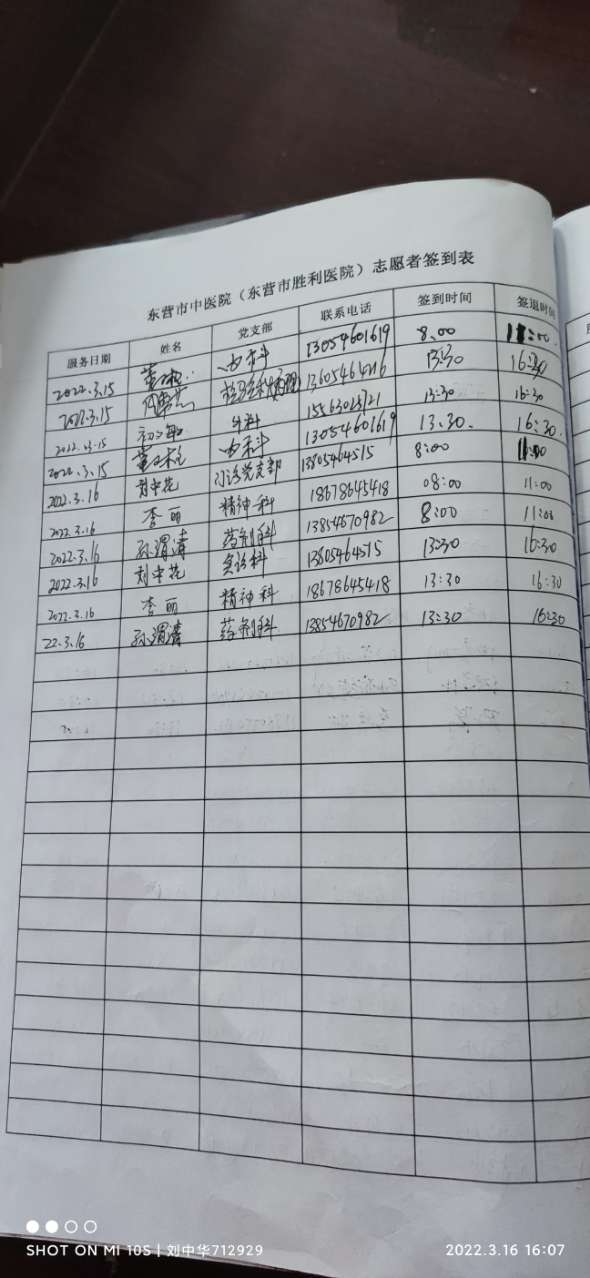 东营市中医院（东营市胜利医院）志愿者签到表
服务日期 姓名 党支部 联系电话 签到时间 签退时间
2022.3.15 内科 13054601619 8:00 11:00
2022.3.15 13:30 16:30
2022.3.15 外科 13:30 16:30
2022.3.15 内科 13054601619 13:30. 16:30.
2022.3.16 刘中花 门诊党支部 13805464515 8:00 11:00
2022.3.16 李丽 精神科 18678645418 08:00 11:00
2022.3.16 孙渭清 药剂科 13854670982 8:00 11:00
2022.3.16 刘中花 13805464515 13:30 16:30
2022.3.16 李丽 精神科 18678645418 13:30 16:30
22.3.16 孙渭清 药剂科 13854670982 13:30 16:30
SHOT ON MI 10S | 刘中华712929
2022.3.16 16:07